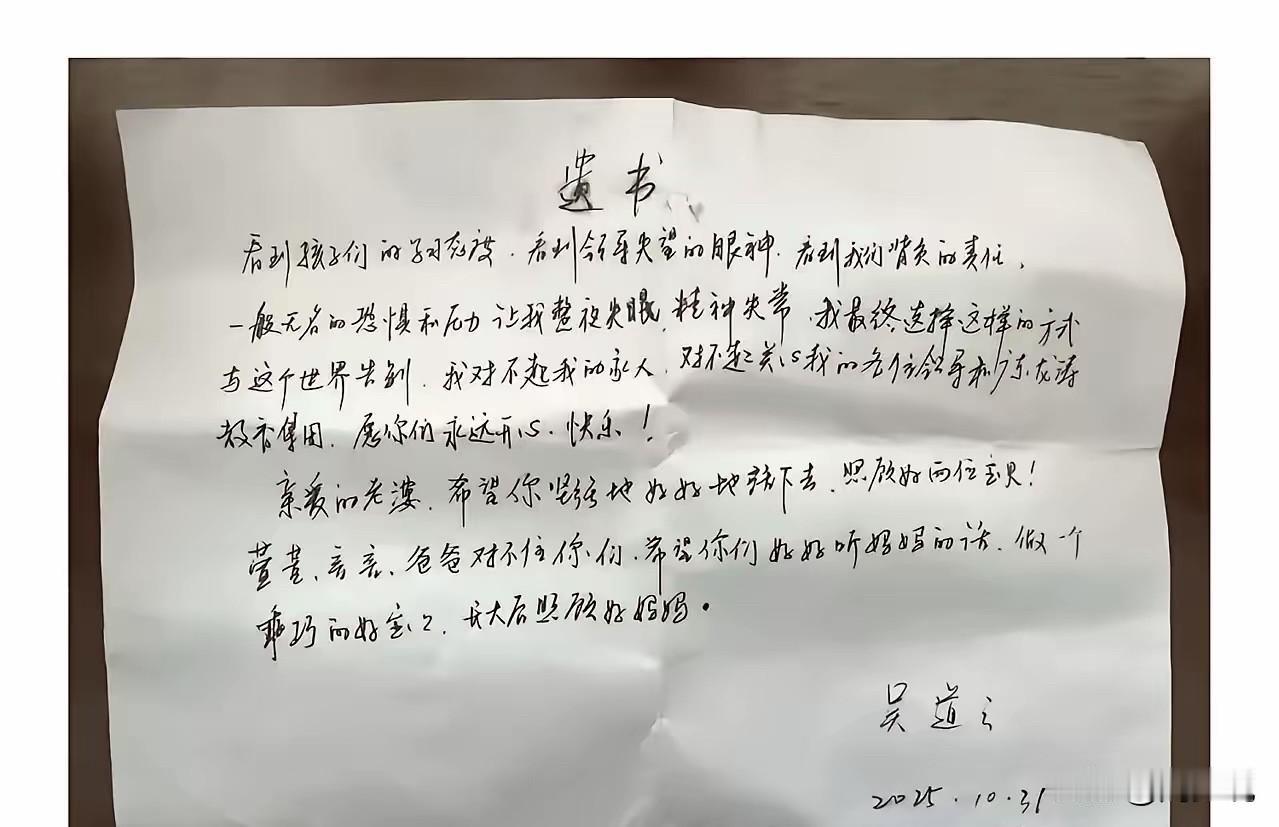 遗书
看到孩子们的学习态度、看到领导失望的眼神、看到我们背负的责任、
一般无名的恐惧和压力让我整夜失眠、精神失常、我最终选择这样的方式
与这个世界告别、我对不起我的家人、对不起关心我的各位领导和陈龙涛
教育集团、愿你们永远开心、快乐！
亲爱的老婆、希望你坚强地好好地活下去、照顾好两位宝贝！
萱萱、言言、爸爸对不住你们、希望你们好好听妈妈的话、做一个
乖巧的好宝宝、长大后照顾好妈妈。
吴道
2025.10.31